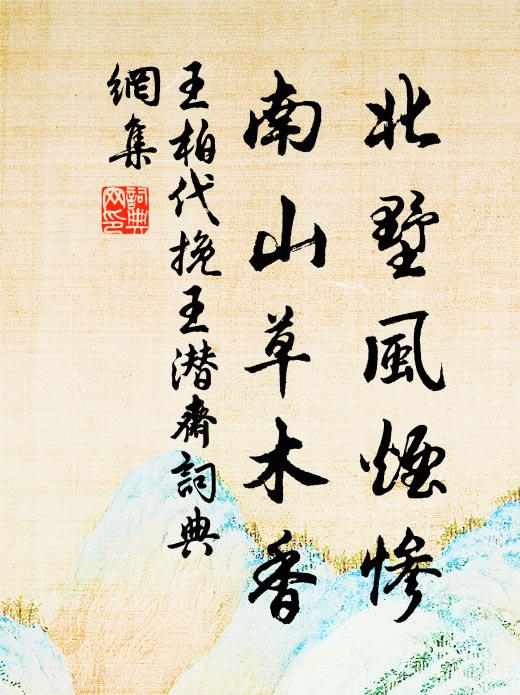 北墅風煙慘
南山草木香
王柏代挽王潛齋詞典
網集
詞典
网印